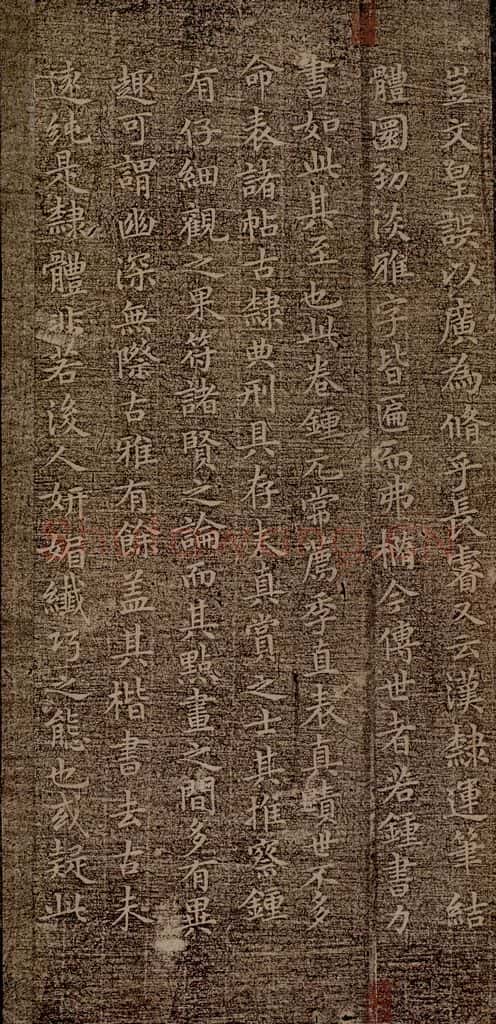 豈文皇誤以廣為脩乎長睿又云漢隸運筆結
體圜勁淡雅字皆匾而弗橢今傳世者若鍾書力
書如此其至也此卷鍾元常薦季直表真蹟世不多
有仔細觀之果符諸賢之論而其點畫之間多有異
命表諸帖古隸典刑具存夫真賞之士其推察鍾
趣可謂幽深無際古雅有餘蓋其楷書去古未
遠純是隸體非若後人妍媚纖巧之態也或疑此